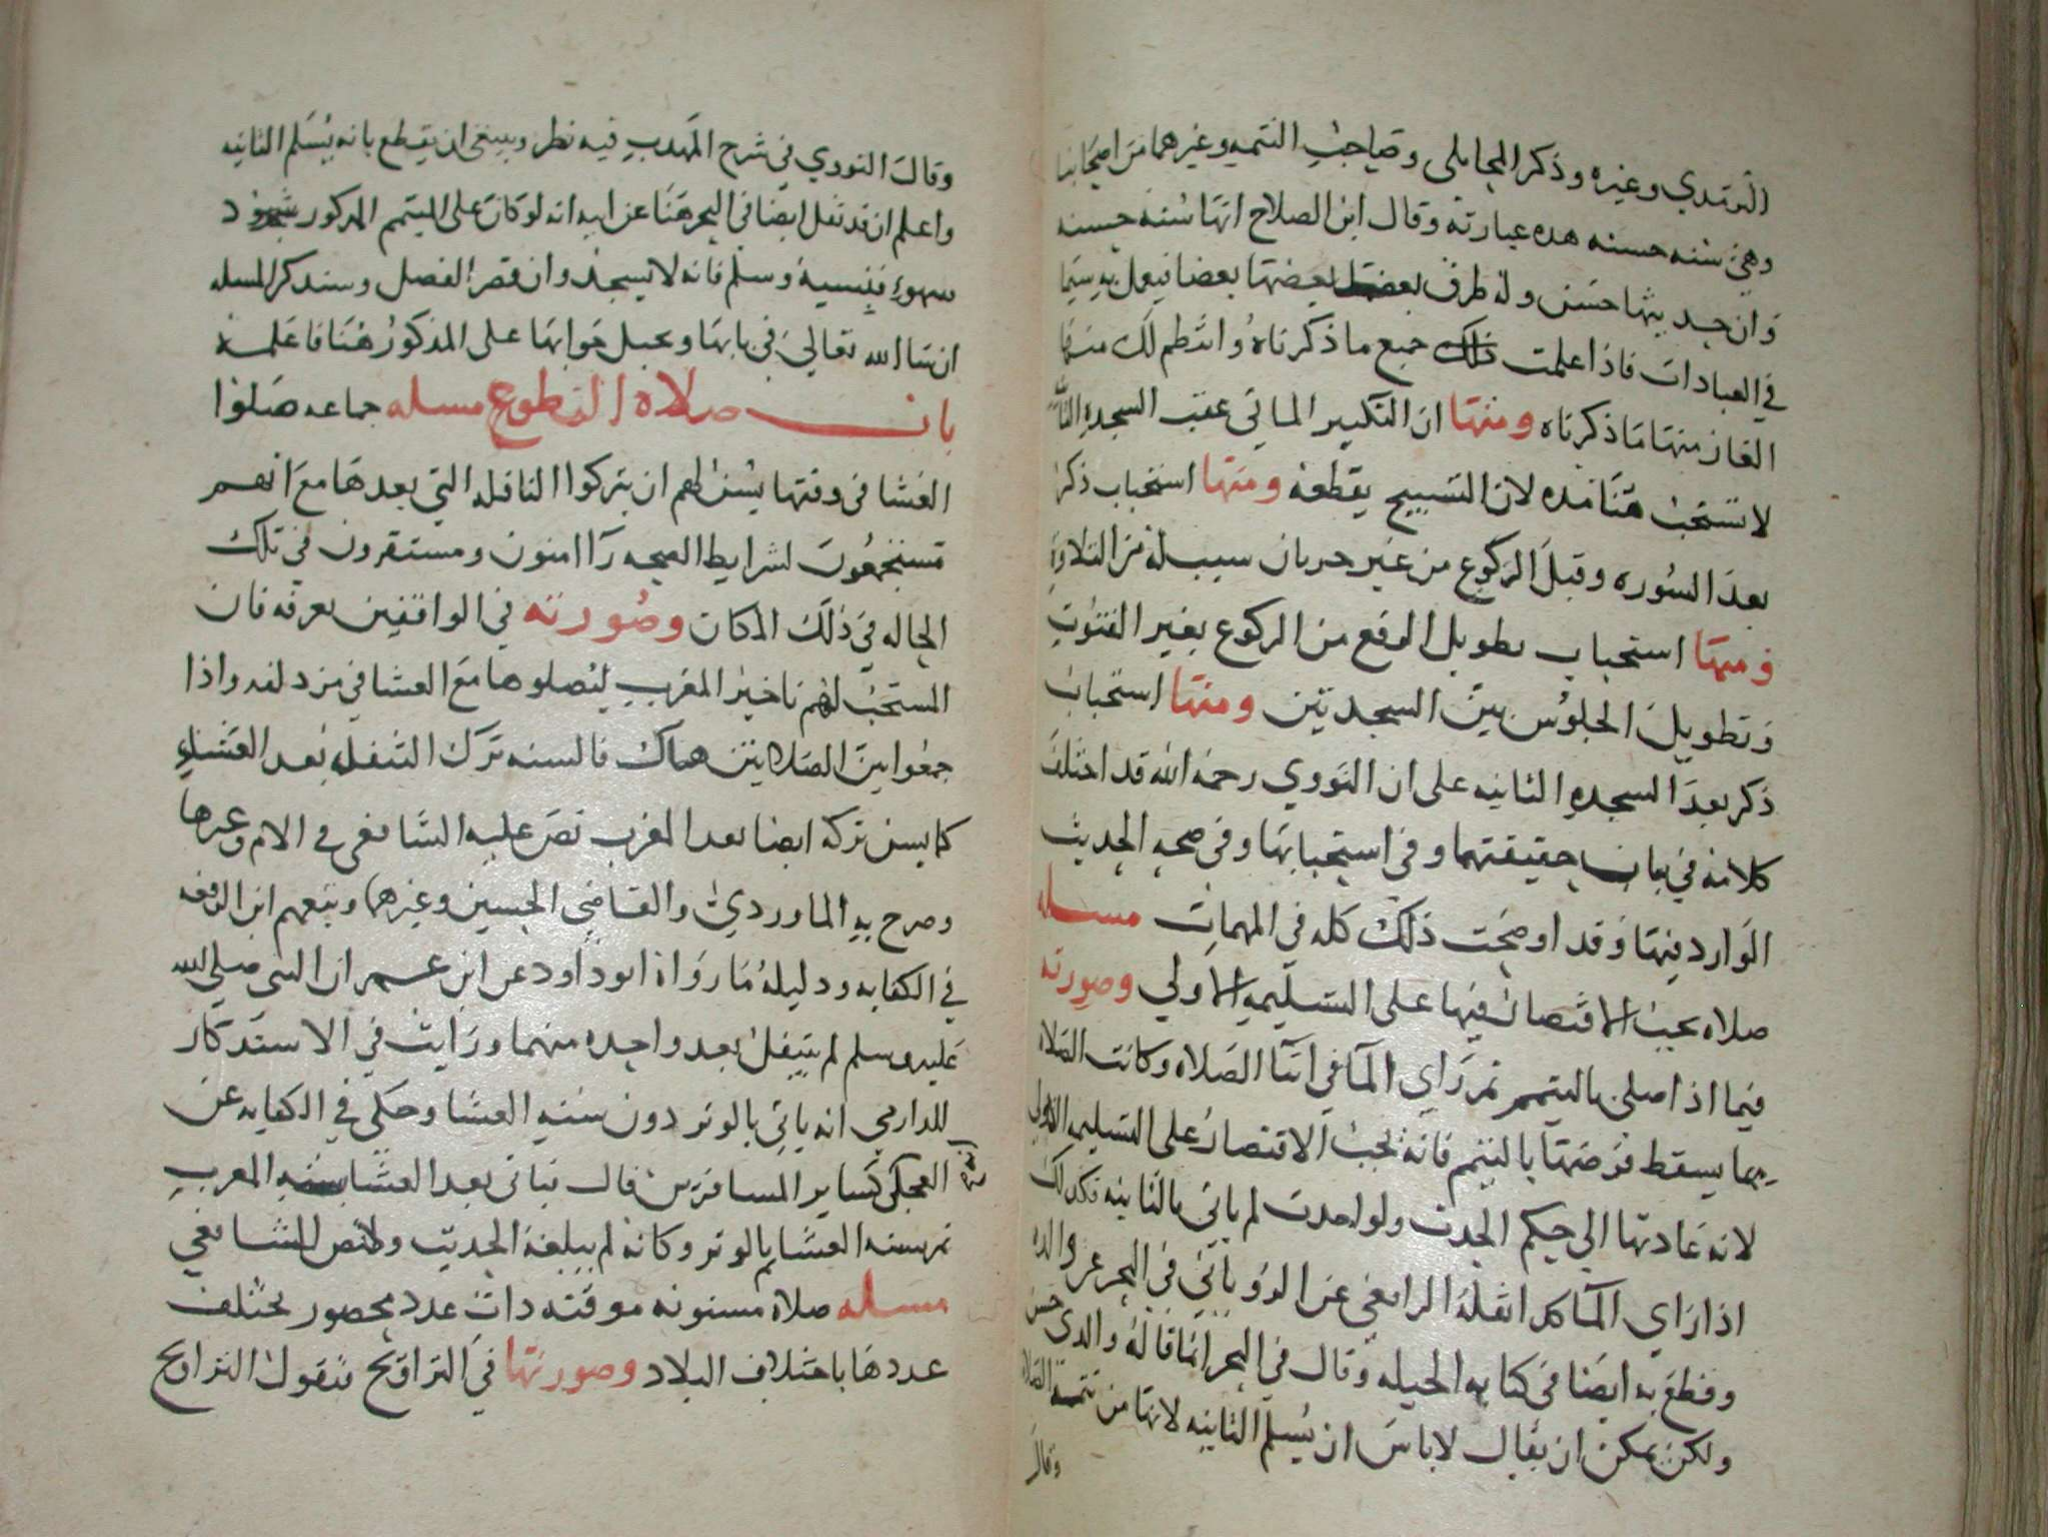 الترمدي وغيره وذكر المحاملى وصاحب التتمه وغيرهما من اصحابنا
وهى سنه حسنه هده عبارته وقال ابن الصلاح انها سنه حسنه
وان حديثها حسن وله طرق يعضد بعضها بعضا فيعمل به سيما
في العبادات فاذا علمت ذلك جميع ما ذكرناه وانتظم لك منها
الغاز منها ما ذكرناه ومنها ان التكبير الماتى عقب السجده الثانيه
لا تستحب هنا مده لان التسبيح يقطعه ومنها استحباب ذكر
بعد السوره وقبل الركوع من غير جريان سبب له من التلاوه
ومنها استحباب تطويل الرفع من الركوع بغير القنوت
وتطويل الجلوس بين السجدتين ومنها استحباب
ذكر بعد السجده الثانيه على ان النووي رحمه الله قد اختلف
كلامه في بيان حقيقتهما وفى استحبابها وفى صحه الحديث
الوارد فيها وقد اوضحت ذلك كله في المهمات مسله
صلاه يجب الاقتصار فيها على التسليمه الاولي وصورته
فيما اذا صلى بالتيمم ثم راي الما في اثنا الصلاه وكانت الصلاه
مما يسقط فرضها بالتيمم فانه يجب الاقتصار على التسليمه الاولى
لانه عاد تها الي حكم الحدث ولو احدث لم ياتي بالثانيه فكذلك
اذا راي الما كدا نقله الرافعي عن الروياني في البحر عن والده
وقطع به ايضا في كتابه الحيله وقال في البحر انما قاله والدى حسن
ولكن يمكن ان يقال لا باس ان يسلم الثانيه لانها من تتمة الصلاه
وقال
وقال النووي في شرح المهدب فيه نظر وينبغى ان يقطع بانه يسلم الثانيه
واعلم ان قد نقل ايضا في البحر هنا عن ابيه انه لو كان على المتيمم المدكور سجود
سهو فنسيه وسلم فانه لا يسجد وان قصر الفصل وسندكر المسله
ان شا الله تعالى في بابها ونحيل جوابها على المذكور هنا فاعلمه
باب صلاه التطوع مسله جماعه صلوا
العشا فى وقتها يسن لهم ان يتركوا النافله التي بعدها مع انهم
مستجمعون لشرايط الصحه را امنون ومستقرون في تلك
الحاله في ذلك المكان وصورته في الواقفين بعرفه فان
المستحب لهم تاخير المغرب ليصلوها مع العشا في مزدلفه واذا
جمعوا بين الصلاتين هناك فالسنه ترك التنفل بعد العشاء
كما يسن تركه ايضا بعد المغرب نص عليه الشافعى في الام وغيرها
وصرح به الماوردي والقاضي الحسين وغيرهما وتبعهم ابن الرفعه
في الكفايه ودليله ما رواه ابو داود عن ابن عمر ان النبى صلى الله
عليه وسلم لم يتنفل بعد واحده منهما ورايت في الاستدكار
للدارمي انه ياتي بالوتر دون سنه العشا وحكى في الكفايه عن
العجلى كساير المسافرين قال فياتى بعد العشا بسنه المغرب
ثم بسنه العشا ثم بالوتر وكانه لم يبلغه الحديث ولا نص للشافعي
مسله صلاه مسنونه موقته دات عدد محصور يختلف
عددها باختلاف البلاد وصورتها في التراويح فنقول التراويح